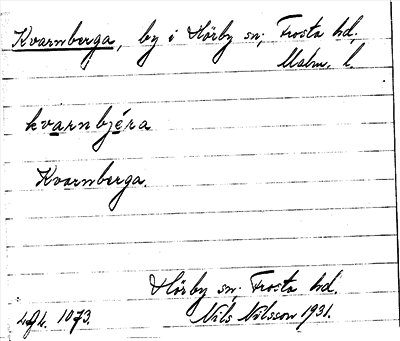 Kvarnberga, by i Hörby sn; Frosta hd.
Malm. l.
kvarnbjéra
Kvarnberga.
Hörby sn; Frosta hd.
1073. Nils Nilsson 1931.